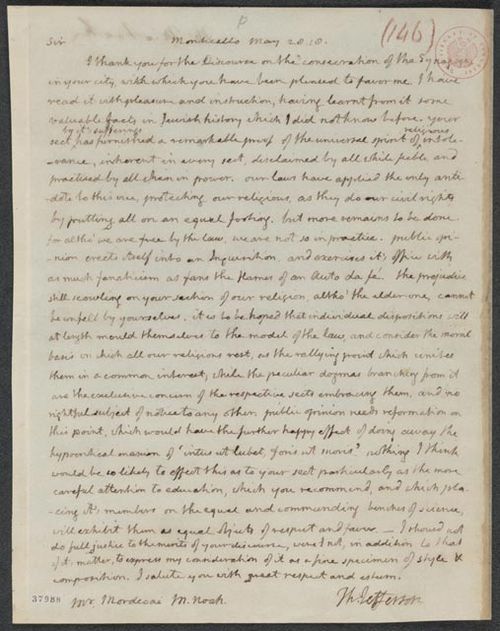 (146)
Sir Monticello May 28. 18.
I thank you for the Discourse on the consecration of the Synagogue
in your city, with which you have been pleased to favor me. I have
read it with pleasure and instruction, having learnt from it some
valuable facts in Jewish history which I did not know before. your
by it's sufferings religious
sect has furnished a remarkable proof of the universal spirit of intole-
-rance, inherent in every sect, disclaimed by all while feeble, and
practised by all when in power. our laws have applied the only anti-
dote to this vice, protecting our religious, as they do our civil rights
by putting all on an equal footing. but more remains to be done.
for altho' we are free by the law, we are not so in practice. public opi-
-nion erects itself into an Inquisition, and exercises it's office with
as much fanaticism as fans the flames of an Auto da fé. the prejudice
still scowling on your section of our religion, altho' the elder one, cannot
be unfelt by yourselves. it is to be hoped that individual dispositions will
at length mould themselves to the model of the law, and consider the moral
basis on which all our religions rest, as the rallying point which unites
them in a common interest; while the peculiar dogmas branching from it
are the exclusive concern of the respective sects embracing them, and no
rightful subject of notice to any other. public opinion needs reformation on
this point, which would have the further happy effect of doing away the
hypocritical maxim of 'intus ut lubet, foris ut moris'. nothing I think
would be so likely to effect this as to your sect particularly as the more
careful attention to education, which you recommend, and which pla-
-cing it's members on the equal and commanding benches of science,
will exhibit them as equal objects of respect and favor. — I should not
do full justice to the merits of your discourse, were I not, in addition to that
of it's matter, to express my consideration of it as a fine specimen of style &
composition. I salute you with great respect and esteem.
37988 Mr. Mordecai M. Noah. Th: Jefferson